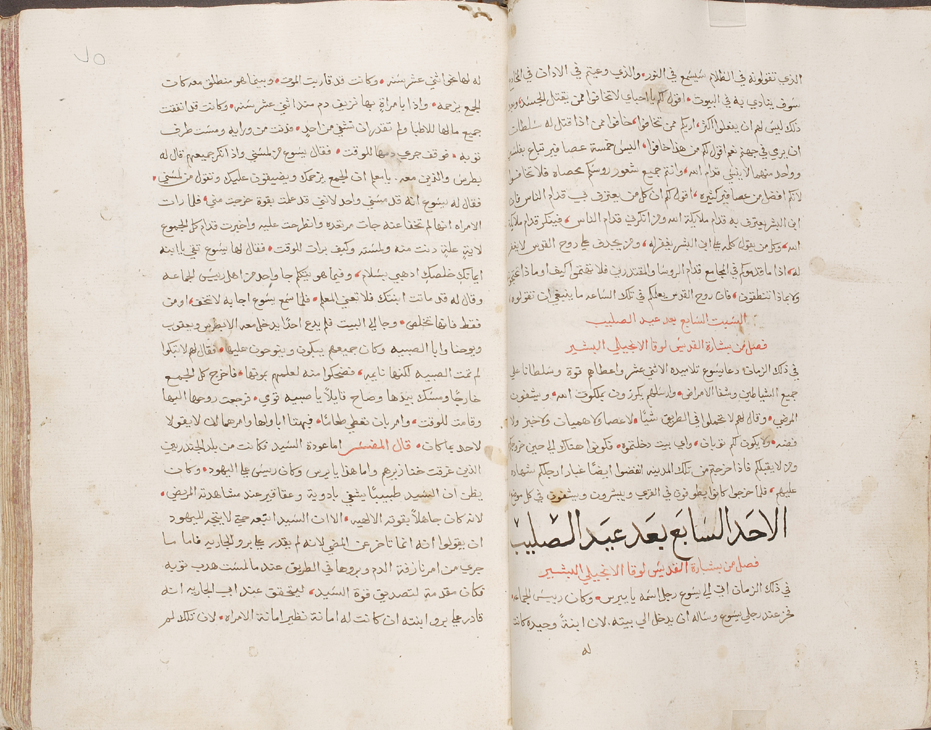 الذي تقولونه في الظلام سيسمع في النور والذي وعيتم في الاذان في
سوف ينادي به في البيوت اقول لكم يا احباي لا تخافوا ممن يقتل الجسد
ذلك ليس لهم ان يفعلوا اكثر اريكم ممن تخافوا خافوا ممن اذا قتل له سلطان
ان يرمي في جهنم نعم اقول لكم من هذا خافوا اليس خمسة عصافير تباع بفلسين
وواحد منهما لا ينسي قدام الله وانتم جميع شعور روسكم محصاه فلا تخافوا
لانكم افضل من عصافير كثيره اقول لكم ان كل من يعترف بي قدام الناس
ابن البشر يعترف به قدام ملايكة الله ومن انكرني قدام الناس فينكر قدام ملايكة
الله وكل من يقول كلمه علي ابن البشر يغفر له ومن يجدف علي روح القدس لا يغفر
له اذا ما قدموكم في المجامع قدام الروسا والمقتدرين فلا تهتموا كيف او ماذا
ولا بماذا تنطقون فان روح القدس يعلمكم في تلك الساعه ما ينبغي ان تقولوه
السبت السابع بعد عيد الصليب
فصل من بشارة القديس لوقا الانجيلي البشير
في ذلك الزمان دعا يسوع تلاميذه الاثني عشر واعطاهم قوة وسلطانا علي
جميع الشياطين وشفا الامراض وارسلهم يكرزون بملكوت الله ويشفون
المرضي وقال لهم لا تحملوا في الطريق شيًا لا عصا ولا هميان ولا خبز ولا
فضه ولا يكون لكم ثوبان واي بيت دخلتموه فكونوا هناك الي حين
ومن لا يقبلكم فاذا خرجتم من تلك المدينه انفضوا ايضًا غبار ارجلكم شهادة
عليهم فلما خرجوا كانوا يطوفون في القري ويبشرون ويشفون في كل موضع
الاحد السابع بعد عيد الصليب
فصل من بشارة القديس لوقا الانجيلي البشير
في ذلك الزمان اتي الي يسوع رجل اسمه يايرس وكان رييس الجماعه
فخر عند رجلي يسوع وساله ان يدخل الي بيته لان ابنةً وحيدة كانت
له
٧٥
له لها نحو اثني عشر سنه وكانت قد قاربت الموت وبينما هو منطلق معه كانت
الجمع يزحمه واذا بامراة بها نزيف دم منذ اثني عشر سنه وكانت قد انفقت
جميع مالها للاطبا ولم تقدر ان تشفي من احدٍ فدنت من ورايه ومست طرف
ثوبه فوقف جري دمها للوقت فقال يسوع من لمسني واذ انكر جميعهم قال له
بطرس والذين معه يا معلم ان الجمع يزحمك ويضيقون عليك وتقول من لمسني
فقال له يسوع انه قد مسني واحد لانني قد علمت بقوة خرجت مني فلما رات
الامراه انها لم تخفا عنه جات مرتعده وانطرحت عليه واخبرت قدام كل الجموع
لاية علةٍ دنت منه ولمسته وكيف برات للوقت فقال لها يسوع ثقي يا ابنه
ايمانكِ خلصكِ اذهبي بسلام وفيما هو يتكلم جا واحد من اهل رييس الجماعه
وقال له قد ماتت ابنتك فلا تعني المعلم فلما سمع يسوع اجابه لا تخف اومن
فقط فانها تخلص وجا الي البيت فلم يدع احدًا يدخل معه الا بطرس ويعقوب
ويوحنا وابا الصبيه وكان جميعهم يبكون وينوحون عليها فقال لهم لا تبكوا
لم تمت الصبيه لكنها نايمه فضحكوا منه لعلمهم بموتها فاخرج كل الجميع
خارجًا ومسك بيدها وصاح قايلًا يا صبيه قومي فرجعت روحها اليها
وقامت للوقت وامر بان تعطي طعامًا فبهتا ابواها وامرهما ان لا يقولا
لاحد ما كان قال المفسر اما عودة السيد فكانت من بلد الجدريين
الذين غرقت خنازيرهم واما هذا يايرس وكان رييس علي اليهود وكان
يظن ان السيد طبيبًا يشفي بادوية وعقاقير عند مشاهدته المرضي
لانه كان جاهلًا بقوته الالهيه الا ان السيد اتبعه حتي لا يتجه لليهود
ان يقولوا انه انما تاخر عن المضي لانه لم يقدر علي برو الجاريه فاما ما
جري من امر نازفة الدم وبروها في الطريق عندما لمست هدب ثوبه
فكان مقدمة لتصديق قوة السيد ليتحقق عند اب الجاريه انه
قادر علي برو ابنته ان كانت له امانة نظير امانة الامراه لان تلك لم